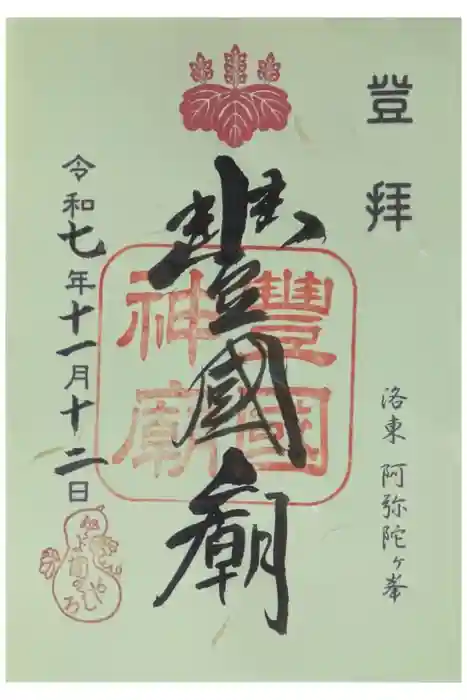 登拝
洛東 阿弥陀ヶ峯
豐國廟
豐國神廟
令和七年十一月十二日